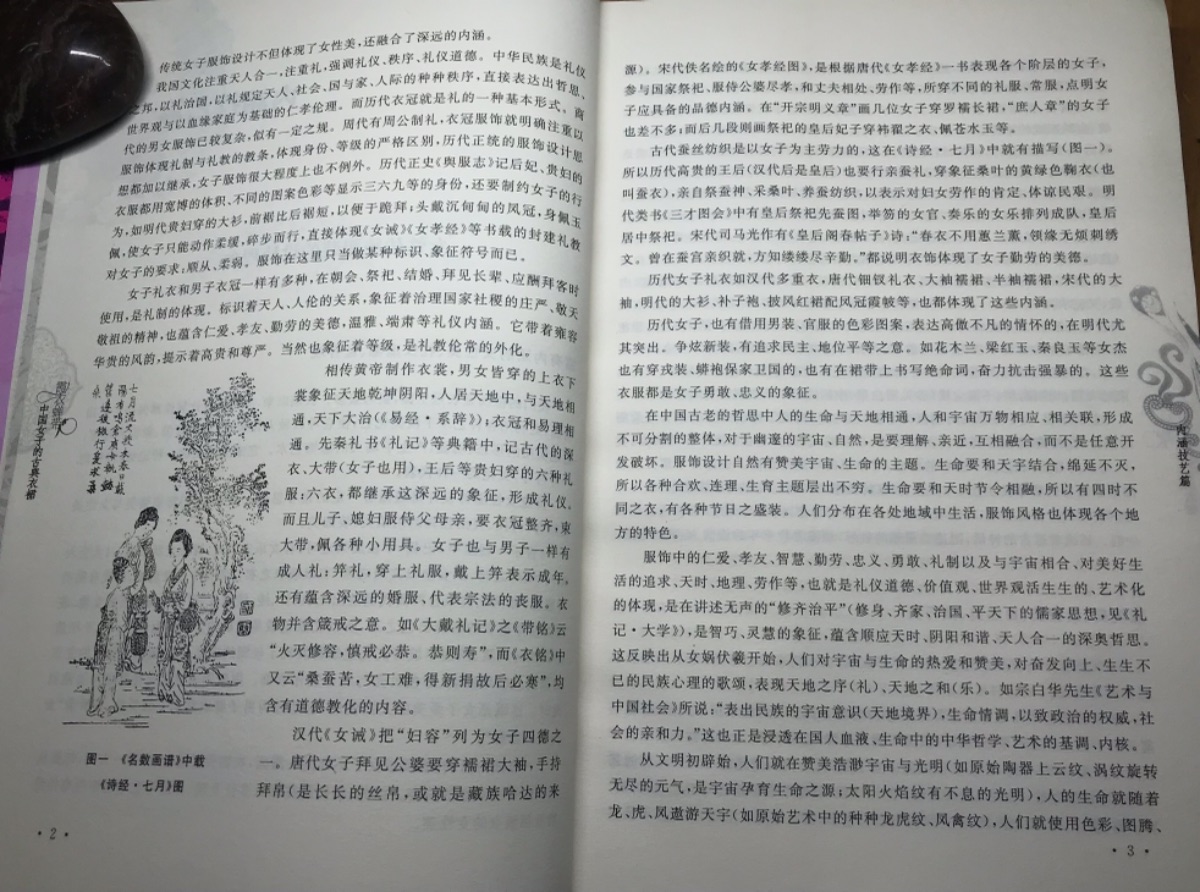 传统女子服饰设计不但体现了女性美,还融合了深远的内涵。
我国文化注重天人合一,注重礼,强调礼仪、秩序、礼仪道德。中华民族是礼仪
之邦,以礼治国,以礼规定天人、社会、国与家、人际的种种秩序,直接表达出哲思、
世界观与以血缘家庭为基础的仁孝伦理。而历代衣冠就是礼的一种基本形式。商
代的男女服饰已较复杂,似有一定之规。周代有周公制礼,衣冠服饰就明确注重以
服饰体现礼制与礼教的教条,体现身份、等级的严格区别,历代正统的服饰设计思
想都加以继承,女子服饰很大程度上也不例外。历代正史《舆服志》记后妃、贵妇的
衣服都用宽博的体积、不同的图案色彩等显示三六九等的身份,还要制约女子的行
为,如明代贵妇穿的大衫,前裾比后裾短,以便于跪拜;头戴沉甸甸的凤冠,身佩玉
佩,使女子只能动作柔缓,碎步而行,直接体现《女诫》《女孝经》等书载的封建礼教
对女子的要求:顺从、柔弱。服饰在这里只当做某种标识、象征符号而已。
女子礼衣和男子衣冠一样有多种,在朝会、祭祀、结婚、拜见长辈、应酬拜客时
使用,是礼制的体现。标识着天人、人伦的关系,象征着治理国家社稷的庄严、敬天
敬祖的精神,也蕴含仁爱、孝友、勤劳的美德,温雅、端肃等礼仪内涵。它带着雍容
华贵的风韵,提示着高贵和尊严。当然也象征着等级,是礼教伦常的外化。
相传黄帝制作衣裳,男女皆穿的上衣下
裳象征天地乾坤阴阳,人居天地中,与天地相
通,天下大治(《易经·系辞》);衣冠和易理相
通。先秦礼书《礼记》等典籍中,记古代的深
衣、大带(女子也用),王后等贵妇穿的六种礼
服:六衣,都继承这深远的象征,形成礼仪。
而且儿子、媳妇服侍父母亲,要衣冠整齐,束
大带,佩各种小用具。女子也与男子一样有
成人礼:笄礼,穿上礼服,戴上笄表示成年。
还有蕴含深远的婚服、代表宗法的丧服。衣
物并含箴戒之意。如《大戴礼记》之《带铭》云
“火灭修容,慎戒必恭。恭则寿”,而《衣铭》中
又云“桑蚕苦,女工难,得新捐故后必寒”,均
含有道德教化的内容。
汉代《女诫》把“妇容”列为女子四德之
一。唐代女子拜见公婆要穿襦裙大袖,手持
拜帛(是长长的丝帛,或就是藏族哈达的来
图一 《名数画谱》中载
《诗经·七月》图
中国女子的古典衣裙
· 2 ·
源)。宋代佚名绘的《女孝经图》,是根据唐代《女孝经》一书表现各个阶层的女子,
参与国家祭祀、服侍公婆尽孝,和丈夫相处、劳作等,所穿不同的礼服、常服,点明女
子应具备的品德内涵。在“开宗明义章”画几位女子穿罗襦长裙,“庶人章”的女子
也差不多;而后几段则画祭祀的皇后妃子穿袆翟之衣、佩苍水玉等。
古代蚕丝纺织是以女子为主劳力的,这在《诗经·七月》中就有描写(图一)。
所以历代高贵的王后(汉代后是皇后)也要行亲蚕礼,穿象征桑叶的黄绿色鞠衣(也
叫蚕衣),亲自祭蚕神、采桑叶、养蚕纺织,以表示对妇女劳作的肯定、体谅民艰。明
代类书《三才图会》中有皇后祭祀先蚕图,举笏的女官、奏乐的女乐排列成队,皇后
居中祭祀。宋代司马光作有《皇后阁春帖子》诗:“春衣不用蕙兰薰,领缘无烦刺绣
文。曾在蚕宫亲织就,方知缕缕尽辛勤。”都说明衣饰体现了女子勤劳的美德。
历代女子礼衣如汉代多重衣,唐代钿钗礼衣、大袖襦裙、半袖襦裙,宋代的大
袖,明代的大衫、补子袍、披风红裙配风冠霞帔等,也都体现了这些内涵。
历代女子,也有借用男装、官服的色彩图案,表达高傲不凡的情怀的,在明代尤
其突出。争炫新装,有追求民主、地位平等之意。如花木兰、梁红玉、秦良玉等女杰
也有穿戎装、蟒袍保家卫国的,也有在裙带上书写绝命词,奋力抗击强暴的。这些
衣服都是女子勇敢、忠义的象征。
在中国古老的哲思中人的生命与天地相通,人和宇宙万物相应、相关联,形成
不可分割的整体,对于幽邃的宇宙、自然,是要理解、亲近,互相融合,而不是任意开
发破坏。服饰设计自然有赞美宇宙、生命的主题。生命要和天宇结合,绵延不灭,
所以各种合欢、连理、生育主题层出不穷。生命要和天时节令相融,所以有四时不
同之衣,有各种节日之盛装。人们分布在各处地域中生活,服饰风格也体现各个地
方的特色。
服饰中的仁爱、孝友、智慧、勤劳、忠义、勇敢、礼制以及与宇宙相合、对美好生
活的追求、天时、地理、劳作等,也就是礼仪道德、价值观、世界观活生生的、艺术化
的体现,是在讲述无声的“修齐治平”(修身、齐家、治国、平天下的儒家思想,见《礼
记·大学》),是智巧、灵慧的象征,蕴含顺应天时、阴阳和谐、天人合一的深奥哲思。
这反映出从女娲伏羲开始,人们对宇宙与生命的热爱和赞美,对奋发向上、生生不
已的民族心理的歌颂,表现天地之序(礼)、天地之和(乐)。如宗白华先生《艺术与
中国社会》所说:“表出民族的宇宙意识(天地境界),生命情调,以致政治的权威,社
会的亲和力。”这也正是浸透在国人血液、生命中的中华哲学、艺术的基调、内核。
从文明初辟始,人们就在赞美浩渺宇宙与光明(如原始陶器上云纹、涡纹旋转
无尽的元气,是宇宙孕育生命之源;太阳火焰纹有不息的光明),人的生命就随着
龙、虎、凤遨游天宇(如原始艺术中的种种龙虎纹、凤禽纹),人们就使用色彩、图腾、
内涵技艺篇
· 3 ·